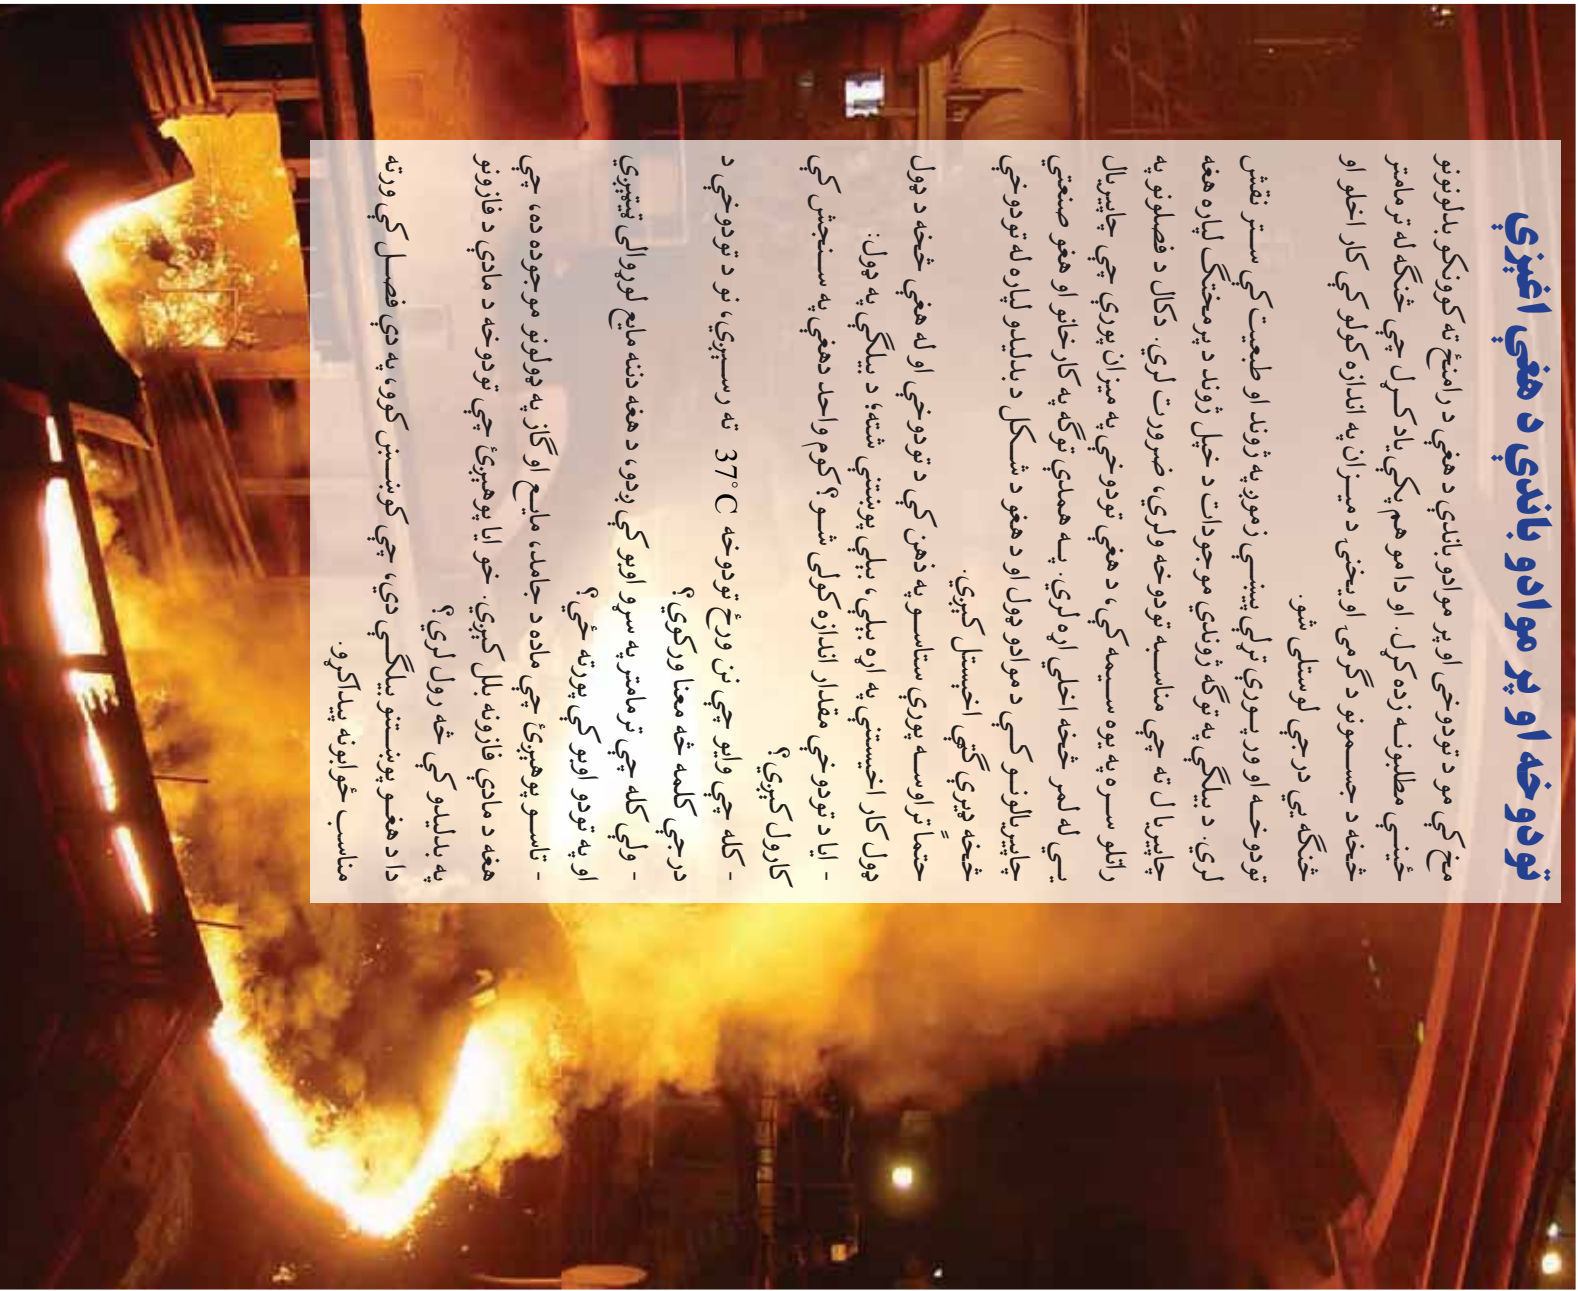 تودوخه او پر موادو باندې د هغې اغېزې
مخ کې مو د تودوخې او پر موادو باندې د هغې د رامنځ ته کوونکو بدلونونو
ځينې مطلبونه زده کړل. او دا مو هم پکې ياد کړل چې څنگه له ترمامتر
څخه د جسمونو د گرمۍ او يخنۍ د ميزان په اندازه کولو کې کار اخلو او
څنگه يې درجې لوستلی شو.
تودوخه او ورپورې تړلې پېښې زموږ په ژوند او طبيعت کې ستر نقش
لري. د بېلگې په توگه ژوندي موجودات د خپل ژوند د پرمختگ لپاره هغه
چاپيريال ته چې مناسبه تودوخه ولري، ضرورت لري. دکال د فصلونو په
راتلو سره په يوه سيمه کې، د هغې تودوخې په ميزان پورې چې چاپيريال
يې له لمر څخه اخلي اړه لري. په همدې توگه په کارخانو او هغو صنعتي
چاپيريالونو کې د موادو ډول او د هغو د شکل د بدلېدو لپاره له تودوخې
څخه ډېرې گټې اخيستل کېږي.
حتماً تر اوسه پورې ستاسو په ذهن کې د تودوخې او له هغې څخه د ډول
ډول کار اخيستنې په اړه بېلې، بېلې پوښتنې شته؛ د بېلگې په ډول:
- ايا د تودوخې مقدار اندازه کولی شو؟ کوم واحد دهغې په سنجش کې
کارول کېږي؟
- کله چې وايو چې نن ورځ تودوخه 37°C ته رسېږي، نو د تودوخې د
درجې کلمه څه معنا ورکوي؟
- ولې کله چې ترمامتر په سړو اوبو کې ږدو، د هغه دننه مايع لوړوالی ټيټېږي
او په تودو اوبو کې پورته ځي؟
- تاسو پوهېږئ چې ماده د جامد، مايع او گاز په ډولونو موجوده ده، چې
هغه د مادې فازونه بلل کېږي. خو ايا پوهېږئ چې تودوخه د مادې د فازونو
په بدلېدو کې څه رول لري؟
دا د هغو پوښتنو بېلگې دي، چې کوښښ کوو، په دې فصل کې ورته
مناسب ځوابونه پيداکړو.